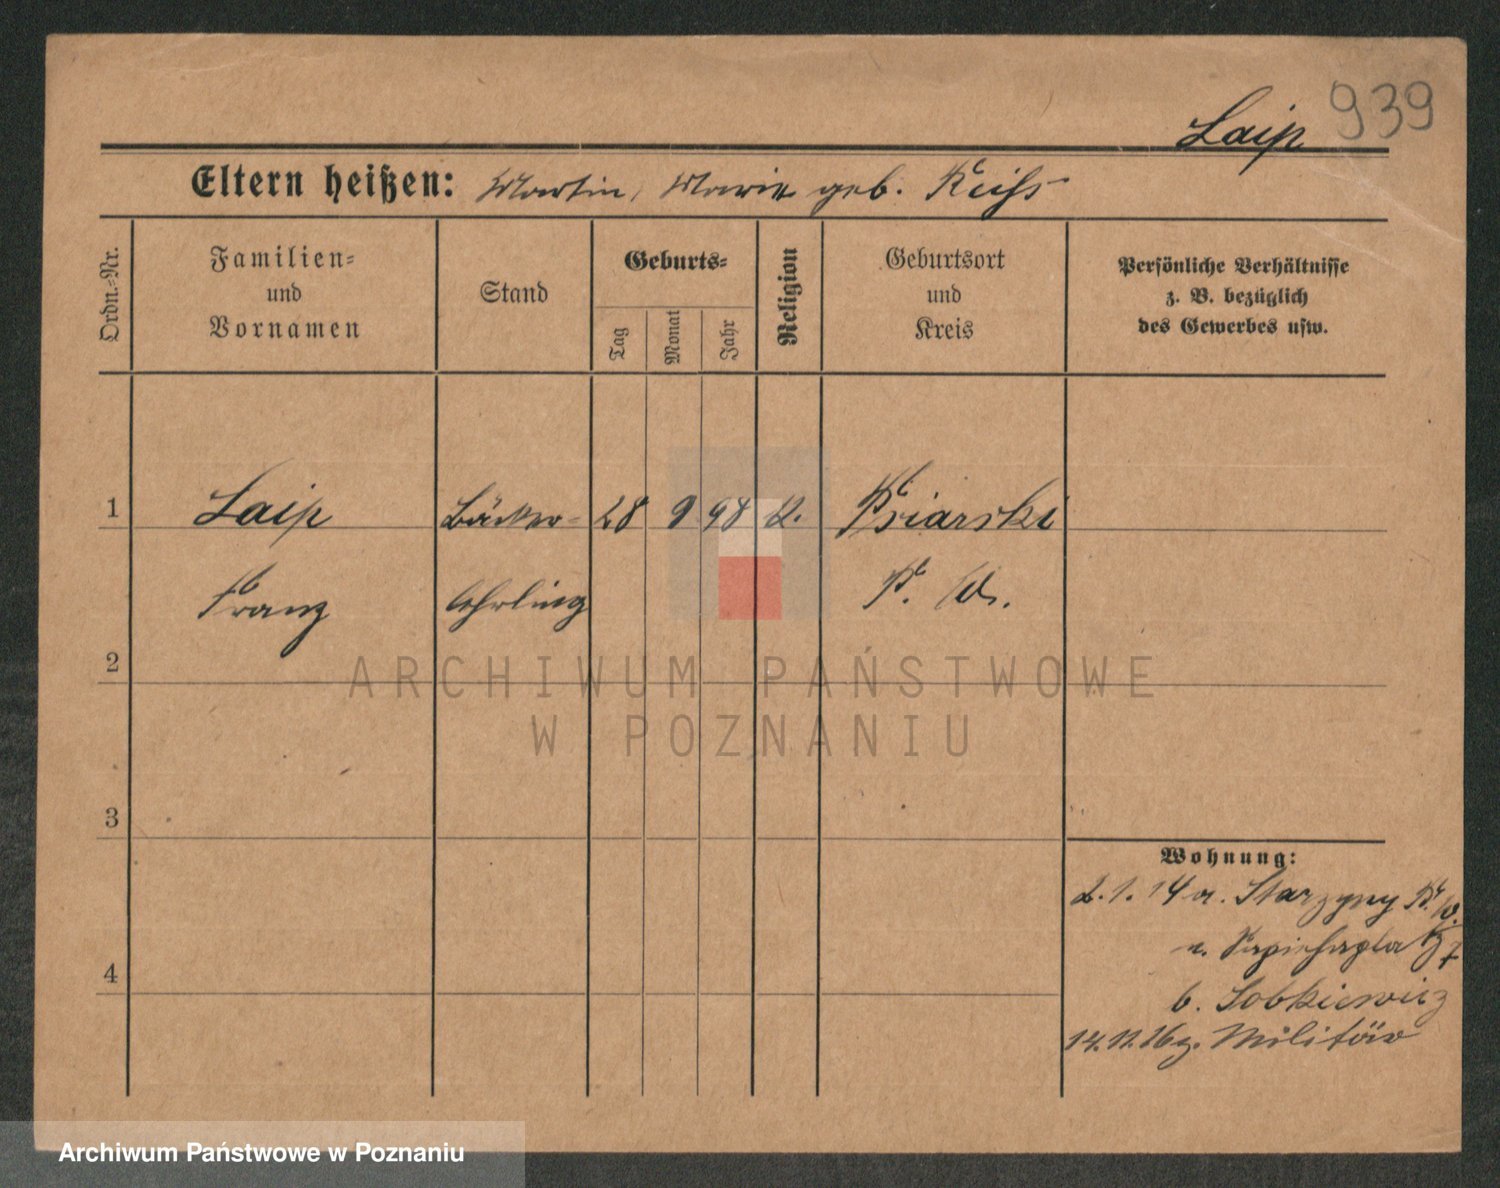 939
Laip
Eltern heißen: Martin, Marie geb. Reiss
Ordn.-Nr.
Familien-
und
Vornamen
Stand
Geburts-
Tag
Monat
Jahr
Religion
Geburtsort
und
Kreis
Persönliche Verhältnisse
z. B. bezüglich
des Gewerbes usw.
1
Laip Bäcker- 28 9 98 k. Psiarski
Franz lehrling P. W.
2
ARCHIWUM PAŃSTWOWE
W POZNANIU
3
Wohnung:
2.1.14 a. P. W.
n. Sapiehapla 7
4
b. Sobkiewicz
Militär
Archiwum Państwowe w Poznaniu